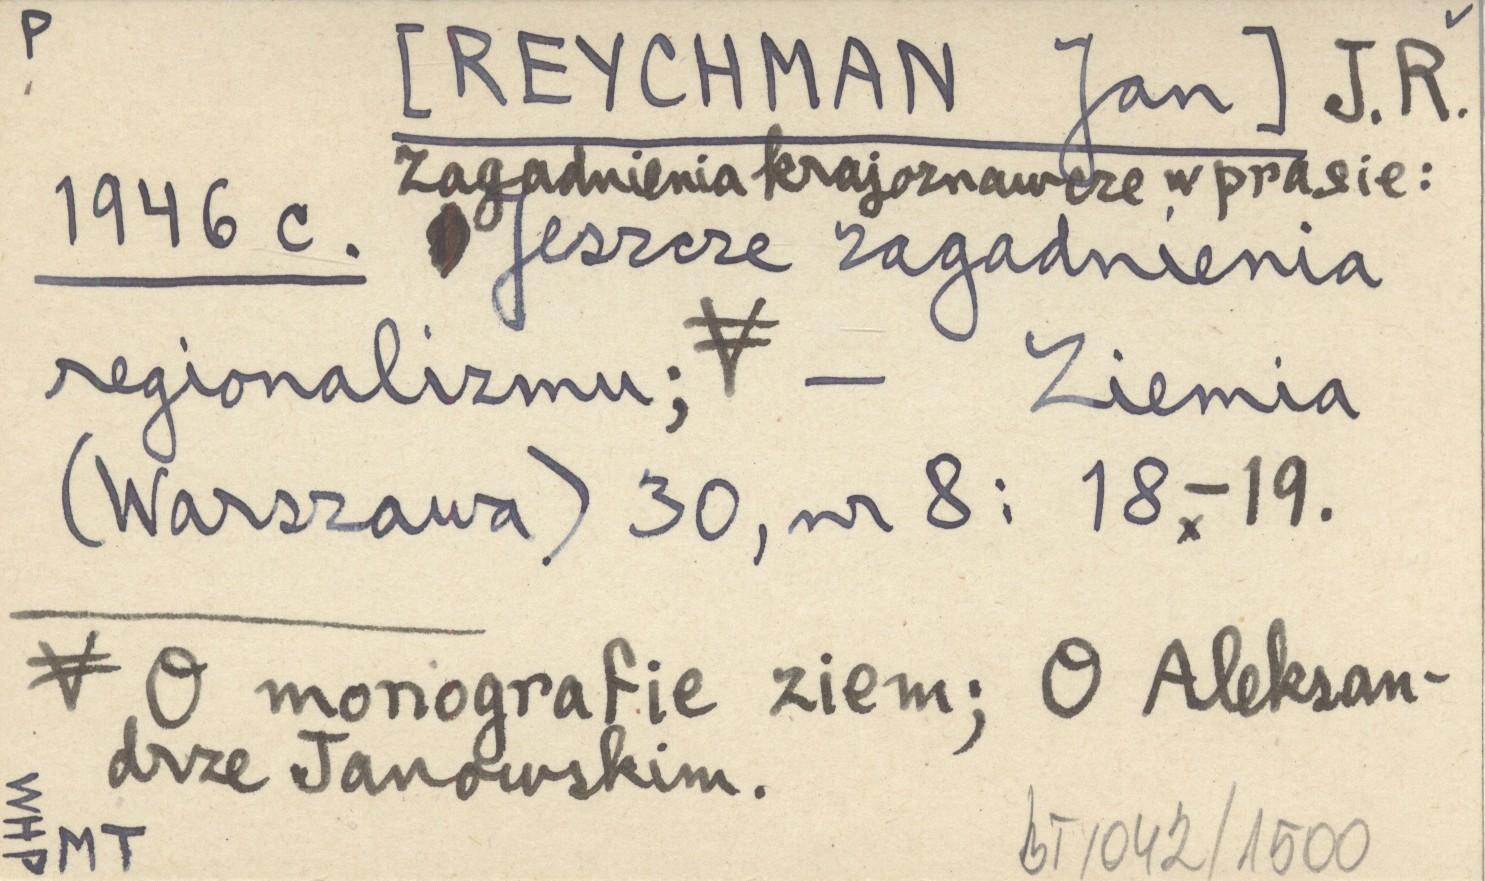 P
[REYCHMAN Jan] J.R.
Zagadnienia krajoznawcze w prasie:
1946 c. Jeszcze zagadnienia
regionalizmu; ∀ — Ziemia
(Warszawa) 30, nr 8: 18-19.
x
∀ O monografie ziem; O Aleksan-
drze Janowskim.
WHP
MT
BT/042/1500